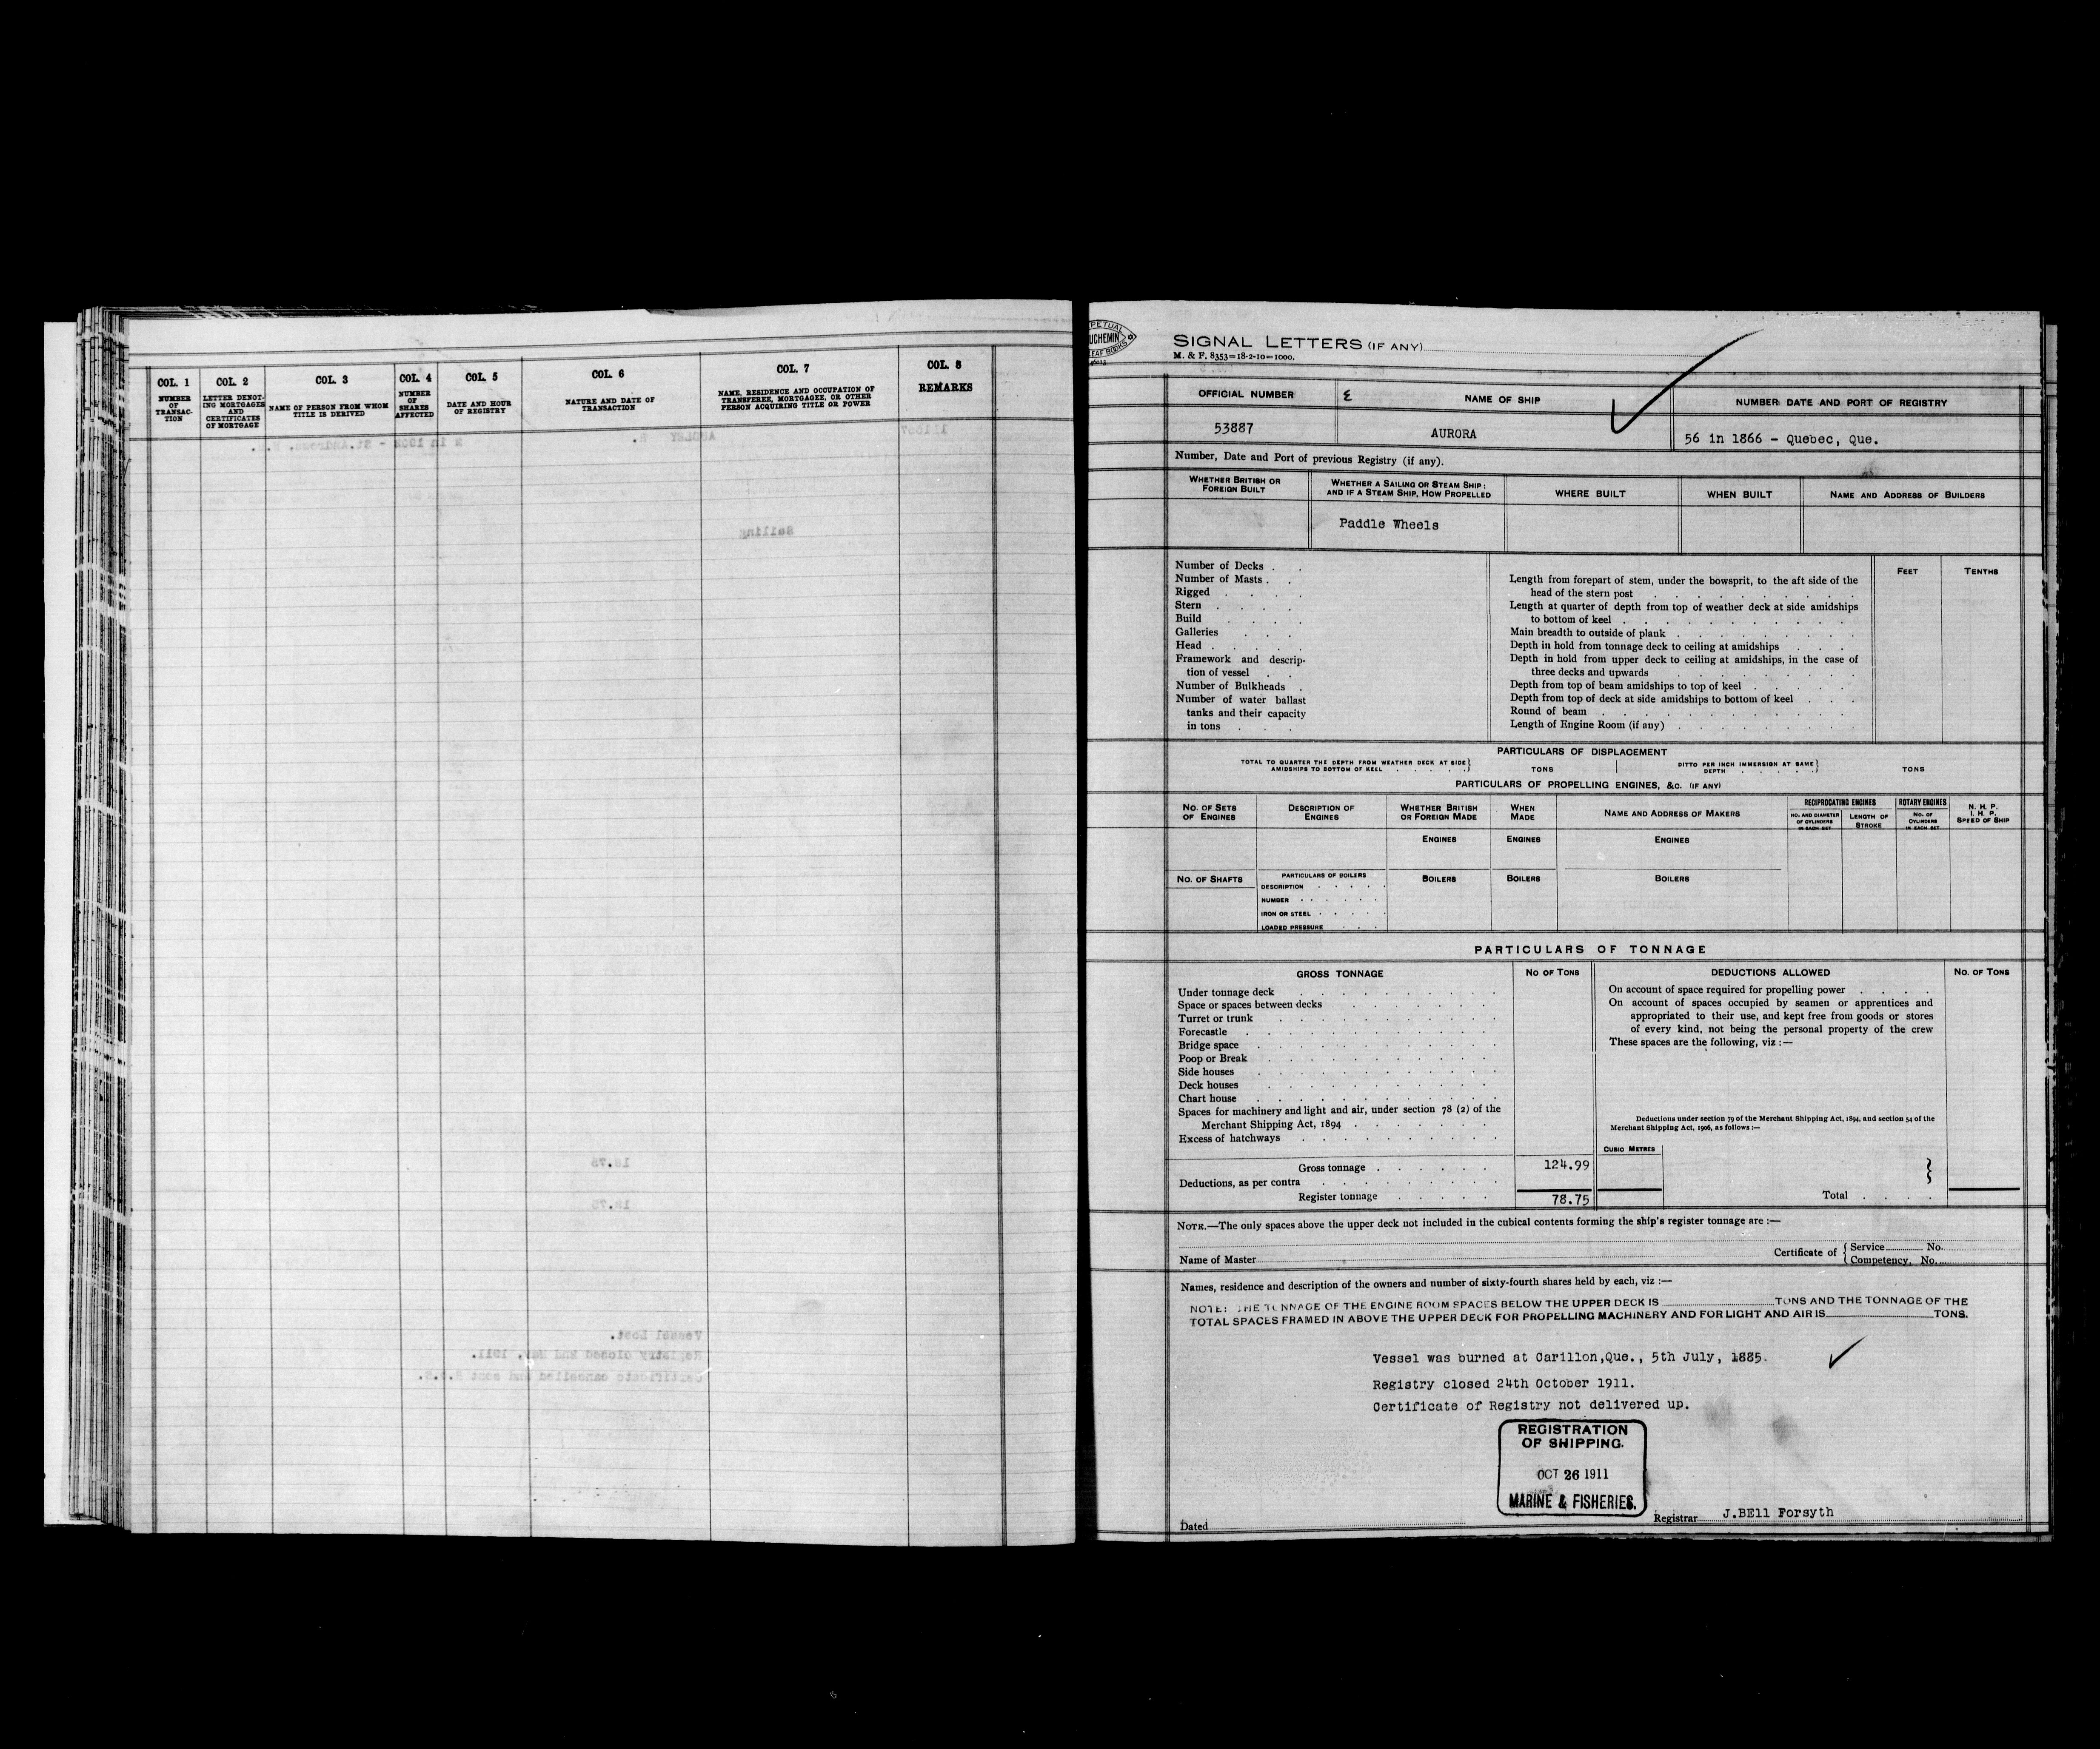 COL. 1
NUMBER
OF
TRANSAC-
TION
COL. 2
LETTER DENOT-
ING MORTGAGES
AND
CERTIFICATES
OF MORTGAGE
COL. 3
NAME OF PERSON FROM WHOM
TITLE IS DERIVED
COL. 4
NUMBER
OF
SHARES
AFFECTED
COL. 5
DATE AND HOUR
OF REGISTRY
COL. 6
NATURE AND DATE OF
TRANSACTION
COL. 7
NAME, RESIDENCE AND OCCUPATION OF
TRANSFEREE, MORTGAGEE, OR OTHER
PERSON ACQUIRING TITLE OR POWER
COL. 8
REMARKS
SIGNAL LETTERS (IF ANY)
M. & F. 8353=18-2-10=1000.
OFFICIAL NUMBER
NAME OF SHIP
NUMBER DATE AND PORT OF REGISTRY
53887
AURORA
56 in 1866 - Quebec, Que.
Number, Date and Port of previous Registry (if any).
WHETHER BRITISH OR
FOREIGN BUILT
WHETHER A SAILING OR STEAM SHIP:
AND IF A STEAM SHIP, HOW PROPELLED
WHERE BUILT
WHEN BUILT
NAME AND ADDRESS OF BUILDERS
Paddle Wheels
Number of Decks . .
Number of Masts . .
Rigged . . . .
Stern . . . .
Build . . . .
Galleries . . .
Head . . . . .
Framework and descrip-
tion of vessel . .
Number of Bulkheads .
Number of water ballast
tanks and their capacity
in tons . . .
FEET
TENTHS
Length from forepart of stem, under the bowsprit, to the aft side of the
head of the stern post
Length at quarter of depth from top of weather deck at side amidships
to bottom of keel
Main breadth to outside of plank
Depth in hold from tonnage deck to ceiling at amidships
Depth in hold from upper deck to ceiling at amidships, in the case of
three decks and upwards
Depth from top of beam amidships to top of keel
Depth from top of deck at side amidships to bottom of keel
Round of beam
Length of Engine Room (if any)
PARTICULARS OF DISPLACEMENT
TOTAL TO QUARTER THE DEPTH FROM WEATHER DECK AT SIDE
AMIDSHIPS TO BOTTOM OF KEEL
TONS
DITTO PER INCH IMMERSION AT SAME
DEPTH
TONS
PARTICULARS OF PROPELLING ENGINES, &c. (IF ANY)
NO. OF SETS
OF ENGINES
DESCRIPTION OF
ENGINES
WHETHER BRITISH
OR FOREIGN MADE
WHEN
MADE
NAME AND ADDRESS OF MAKERS
RECIPROCATING ENGINES
NO. AND DIAMETER
OF CYLINDERS
IN EACH SET
LENGTH OF
STROKE
ROTARY ENGINES
NO. OF
CYLINDERS
IN EACH SET
N. H. P.
I. H. P.
SPEED OF SHIP
ENGINES
ENGINES
ENGINES
NO. OF SHAFTS
PARTICULARS OF BOILERS
DESCRIPTION
NUMBER
IRON OR STEEL
LOADED PRESSURE
BOILERS
BOILERS
BOILERS
PARTICULARS OF TONNAGE
GROSS TONNAGE
NO OF TONS
DEDUCTIONS ALLOWED
NO. OF TONS
Under tonnage deck
Space or spaces between decks
Turret or trunk
Forecastle
Bridge space
Poop or Break
Side houses
Deck houses
Chart house
Spaces for machinery and light and air, under section 78 (2) of the
Merchant Shipping Act, 1894
Excess of hatchways
Gross tonnage
124.99
Deductions, as per contra
Register tonnage
78.75
On account of space required for propelling power
On account of spaces occupied by seamen or apprentices and
appropriated to their use, and kept free from goods or stores
of every kind, not being the personal property of the crew
These spaces are the following, viz :—
Deductions under section 79 of the Merchant Shipping Act, 1894, and section 54 of the
Merchant Shipping Act, 1906, as follows :—
CUBIC METRES
Total
NOTE.—The only spaces above the upper deck not included in the cubical contents forming the ship's register tonnage are :—
Name of Master
Certificate of
Service No.
Competency, No.
Names, residence and description of the owners and number of sixty-fourth shares held by each, viz :—
NOTE: THE TONNAGE OF THE ENGINE ROOM SPACES BELOW THE UPPER DECK IS TONS AND THE TONNAGE OF THE
TOTAL SPACES FRAMED IN ABOVE THE UPPER DECK FOR PROPELLING MACHINERY AND FOR LIGHT AND AIR IS TONS.
Vessel was burned at Carillon,Que., 5th July, 1885.
Registry closed 24th October 1911.
Certificate of Registry not delivered up.
REGISTRATION
OF SHIPPING.
OCT 26 1911
MARINE & FISHERIES.
Dated
Registrar J.BEll Forsyth